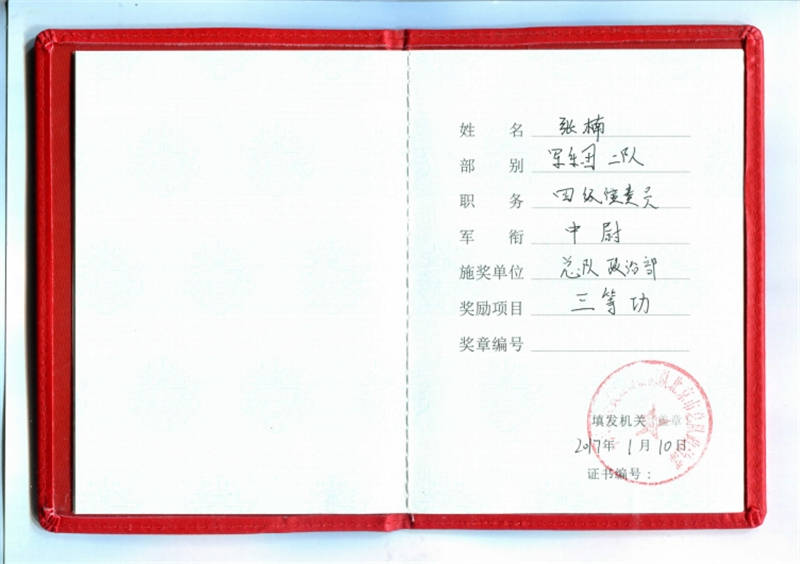 姓 名 张楠
部 别 军乐团二队
职 务 四级演奏员
军 衔 中尉
施奖单位 总队政治部
奖励项目 三等功
奖章编号
填发机关(盖章)
2017年1月10日
证书编号: